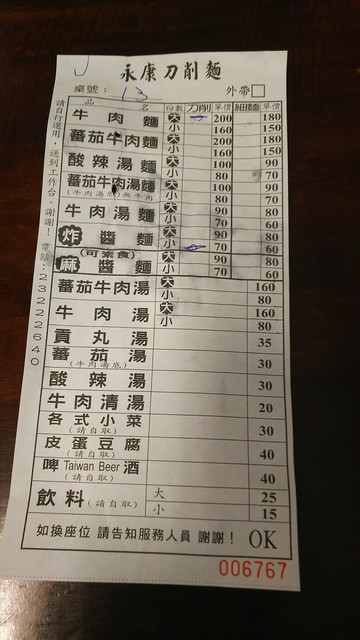 永康刀削麵
桌號： 13 外帶□
品 名 份數 刀削 單價 細麵 單價
牛肉麵 大 200 180
小 160 150
蕃茄牛肉麵 大 200 180
小 160 150
酸辣湯麵 大 100 90
小 80 70
蕃茄牛肉湯麵 大 100 90
(牛肉湯底)無牛肉 小 80 70
牛肉湯麵 大 90 80
小 70 60
炸醬麵 大 90 80
(可素食) 小 70 60
麻醬麵 大 90 80
小 70 60
蕃茄牛肉湯 大 160
小 80
牛肉湯 大 160
小 80
貢丸湯 35
蕃茄湯 30
(牛肉湯底)
酸辣湯 30
牛肉清湯 20
各式小菜 30
(請自取)
皮蛋豆腐 40
(請自取)
啤 Taiwan Beer 酒 40
(請自取)
飲料(請自取) 大 25
小 15
如換座位 請告知服務人員 謝謝！ OK
006767
請自行選用，送到工作台。謝謝！電話：23222640